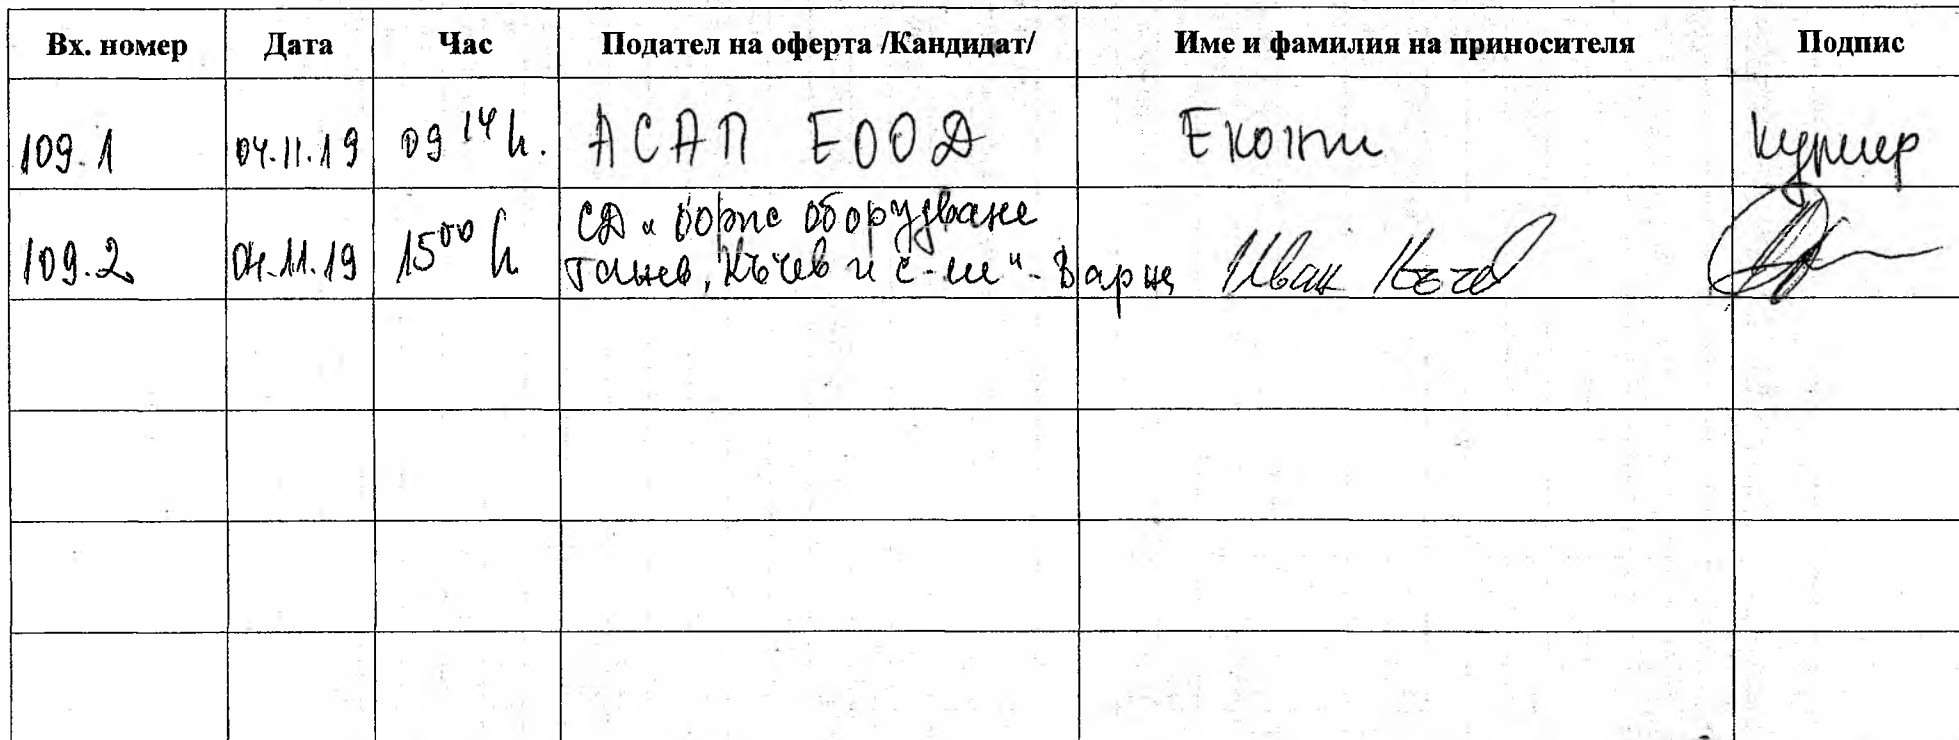 Вх. номер Дата Час Подател на оферта /Кандидат/ Име и фамилия на приносителя Подпис
109.1 04.11.19 09 14 h. АСАП ЕООД Еконт куриер
109.2 04.11.19 15 00 h СД " оборудване
Къчев и с-ие" - Варна Иван Къчев